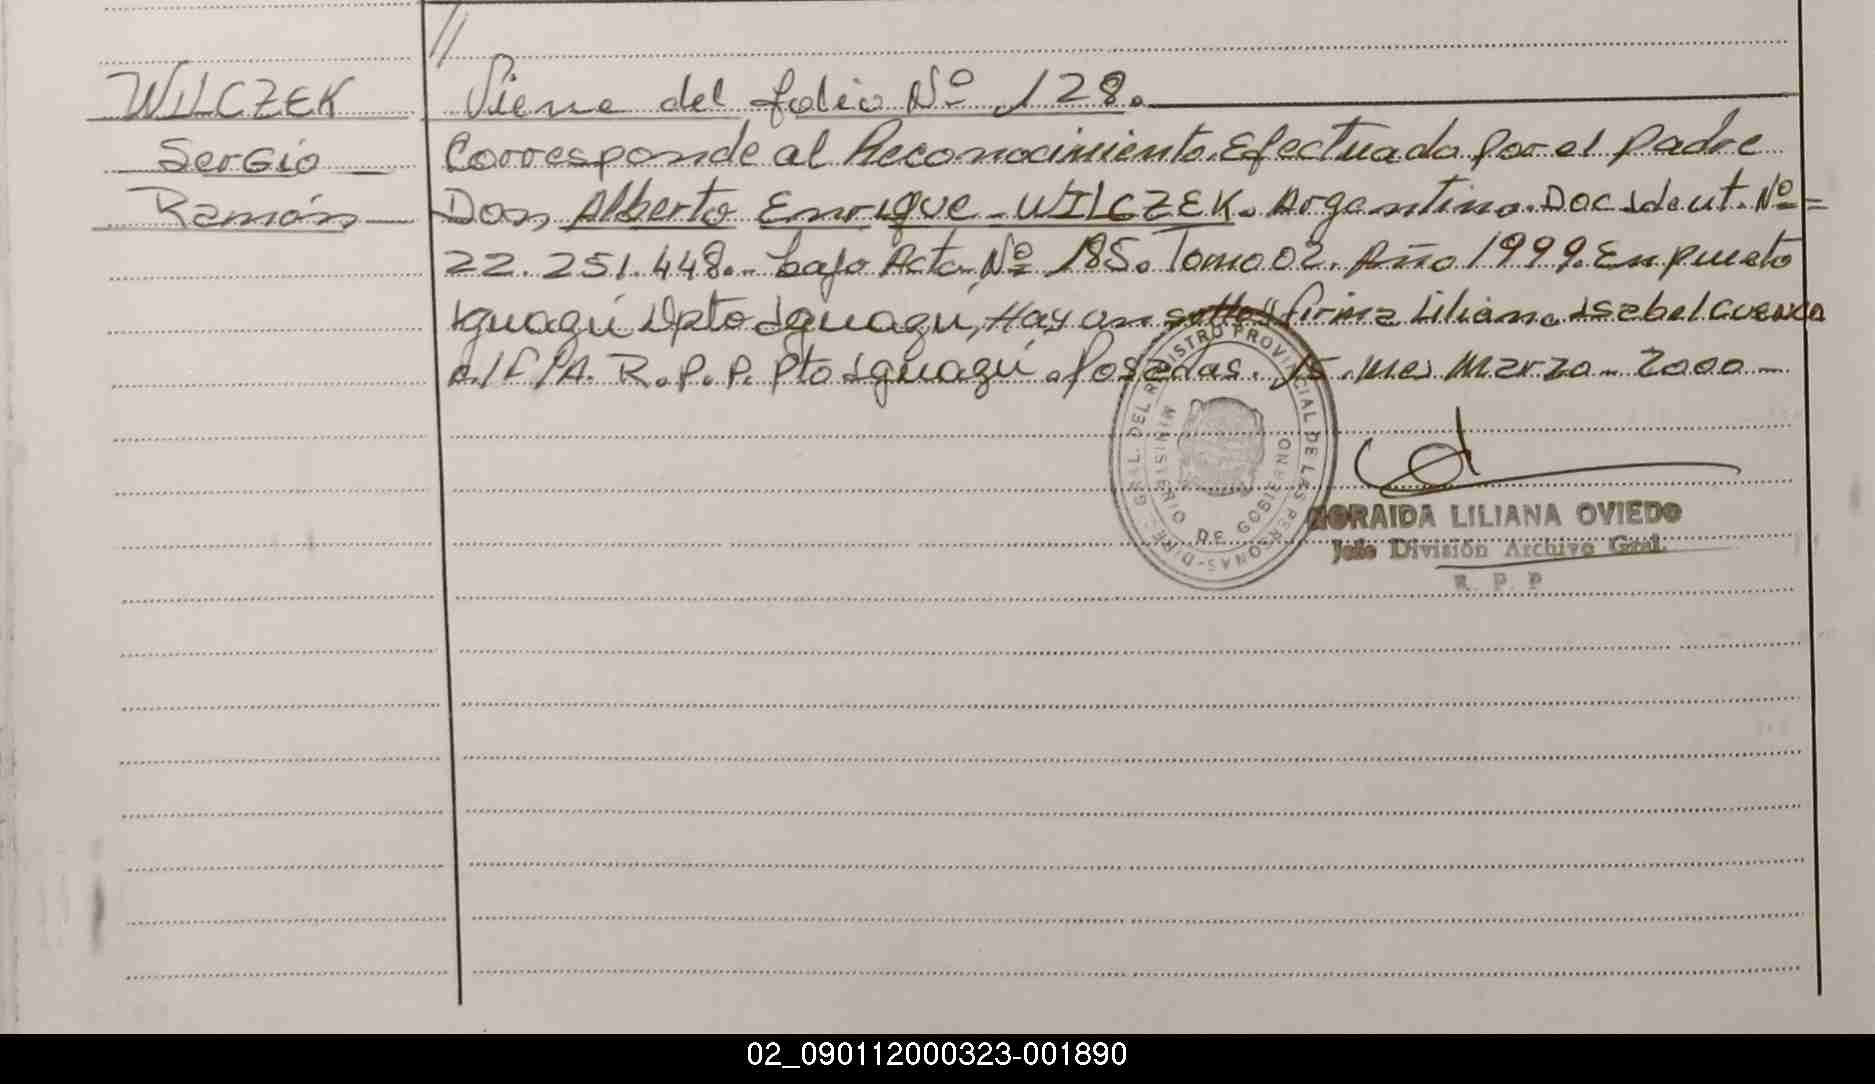 //
WILCZEK
Sergio
Ramón
Viene del folio Nº 128.
Corresponde al Reconocimiento. Efectuado por el padre
Don, Alberto Enrique - WILCZEK. Argentino. Doc Ident. Nº =
22.251.448.- bajo Acta Nº 185. Tomo 02. Año 1999. En puerto
Iguazú Dpto Iguazú, Hay un sello y firma Liliana Isabel Cuenca
R.P.P. Pto Iguazú. Posadas. 15. mes Marzo - 2000 -
DIREC. GRAL. DEL REGISTRO PROVINCIAL DE LAS PERSONAS-
MINISTERIO DE GOBIERNO
NORAIDA LILIANA OVIEDO
Jefe División Archivo Gral.
R. P. P
02_090112000323-001890